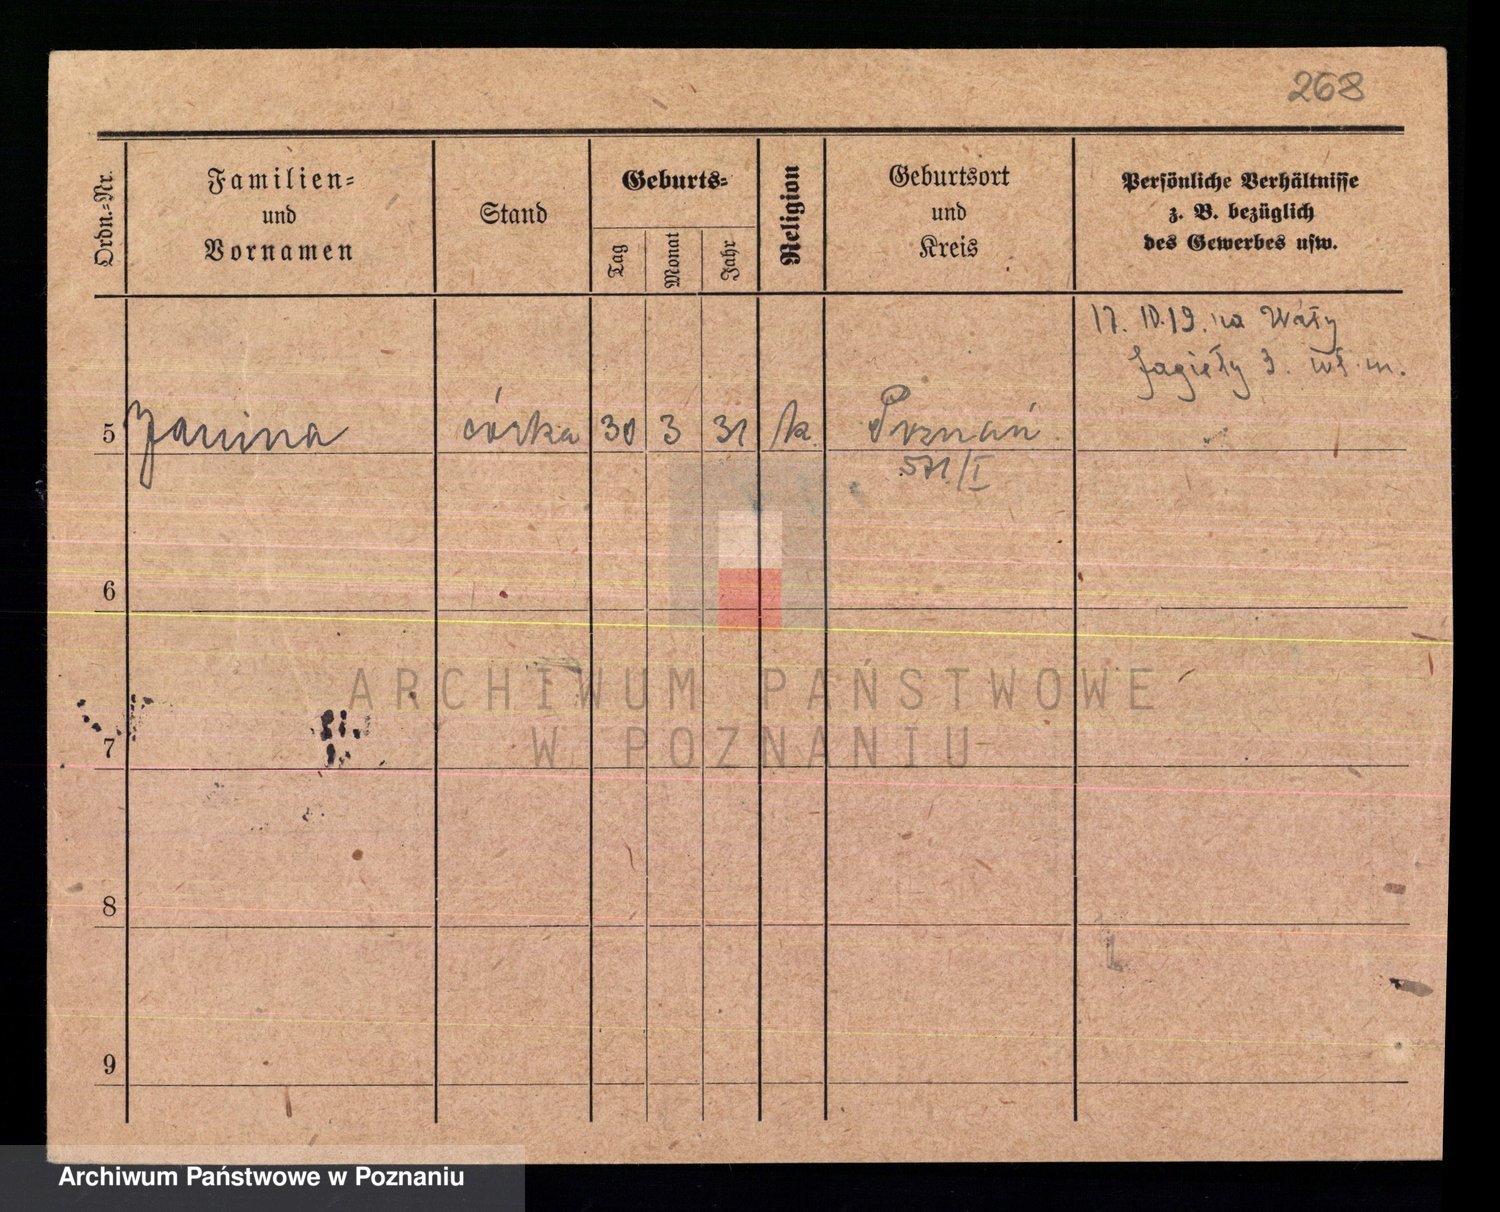 268
Ordn.-Nr.
Familien-
und
Vornamen
Stand
Geburts-
Tag
Monat
Jahr
Religion
Geburtsort
und
Kreis
Persönliche Verhältnisse
z. B. bezüglich
des Gewerbes usw.
17. 10.19. na Wały
Jagiełły 3. wł. m.
5 Janina córka 30 3 31 k. Poznań
571/I
6
7
8
9
ARCHIWUM PAŃSTWOWE
W POZNANIU
Archiwum Państwowe w Poznaniu